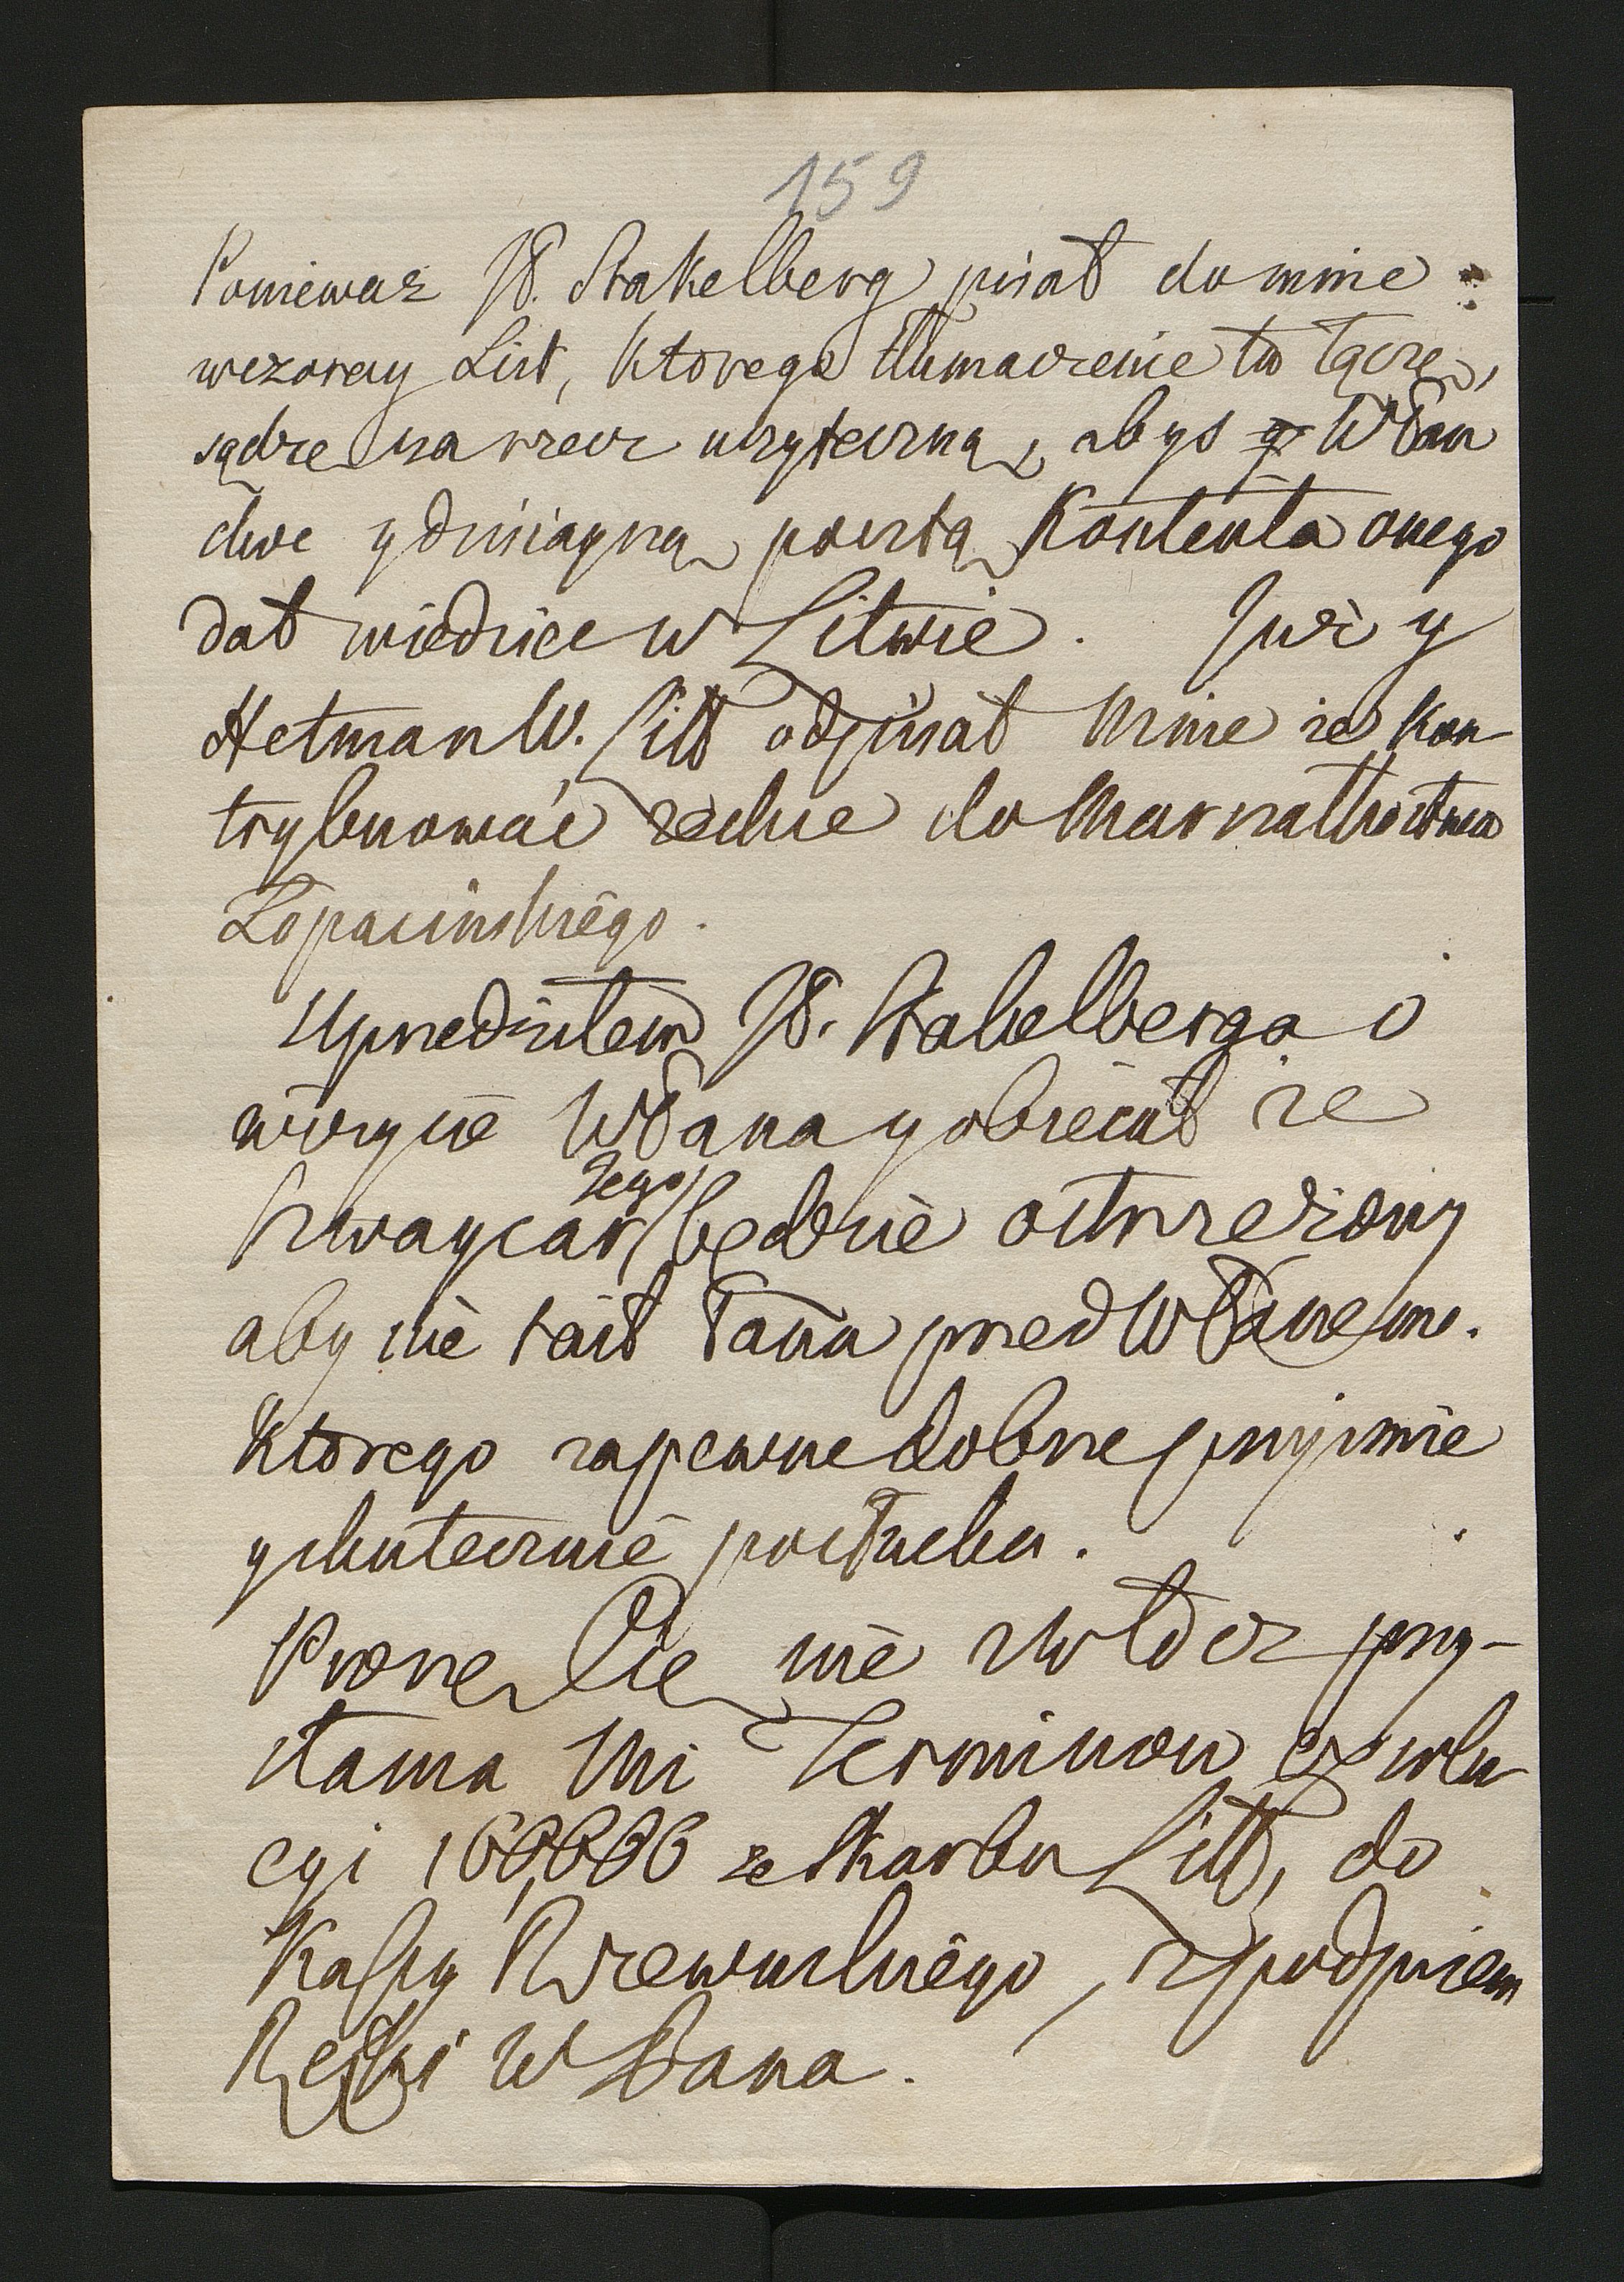 159
Poniewaz JP. Stakelberg pisał do mnie
wczoray List, ktorego tłumaczenie tu łączę,
sądzę za rzecz uzyteczną, abys WPan
chce y dzisiayszą pocztą Kontenta onego
dał wiedziec w Litwie. Juz y
Hetman W. Litt odpisał mnie ze kon-
trybuowac zechce do Marszałkostwa
Łopacinskiego.
Uprzedziłem JP. Stakelberga o
wizycie WPana y obiecał ze
Szwaycar Jego będzie ostrzezony
aby nie taił Pana przed WPanem.
Ktorego zapewne dobrze przyimie
y skutecznie posłucha.
Proszę Cię nie zwłocz przy-
słania Mi Terminow exolu-
cyi 160,000 ze Skarbu Litt, do
Kassy Rzewuskiego, z podpisem
Ręki WPana.